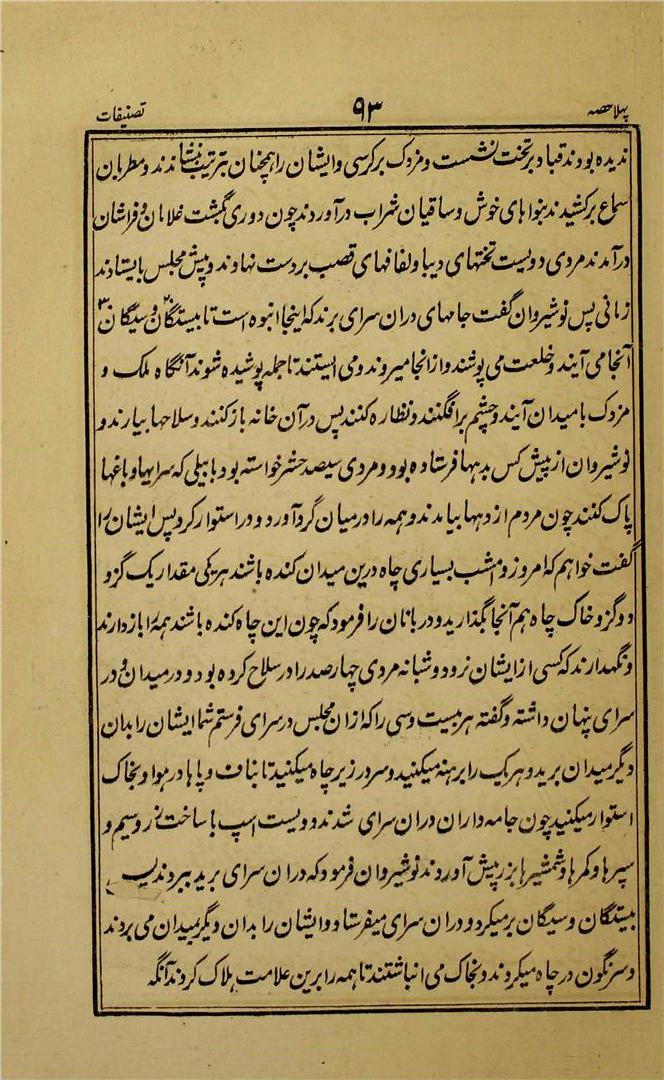 پہلا حصہ ۹۳ تصنیفات
ندیده بودند قباد بر تخت نشست و مزدک بر کرسی و ایشان را همچنان بترتیب نشاندند و مطربان
سماع برکشیدند بنواهای خوش و ساقیان شراب درآوردند چون دوری بگشت غلامان و فراشان
درآمدند مردی دویست تختهای دیبا و لفافهای قصب بر دست نهاوند و پیش مجلس بایستادند
زمانی پس نوشیروان گفت جامهای دران سرای برند که اینجا انبوه است تا بیستگان و سیگان
آنجا می آیند و خلعت می پوشند و از آنجا میروند و می ایستند تا جمله پوشیده شوند آنگاه ملک و
مزدک با میدان آیند و چشم برافگنند و نظاره کنند پس در آن خانه باز کنند و سلاحها بیارند و
نوشیروان از پیش کس بدیهها فرستاده بود و مردی سیصد حشر خواسته بود با بیلی که سرایها و باغها
پاک کنند چون مردم از دیهها بیامدند و همه را در میان گرد آورد و در استوار کرد پس ایشان را
گفت خواهم که امروز و امشب بسیاری چاه درین میدان کنده باشند هر یکی مقدار یک گز و
دو گز و خاک چاه هم آنجا بگذارید و دربانان را فرمود که چون این چاه کنده باشند همه را بازدارند
و نگهدارند که کسی از ایشان نرود و شبانه مردی چهارصد را در سلاح کرده بود و در میدان و در
سرای پنهان داشته و گفته هر بیست و سی را که ازان مجلس در سرای فرستم شما ایشان را بدان
دیگر میدان برید و هر یک را برهنه میکنید و سر در زیر چاه میکنید تا بناف و پاها در هوا و بخاک
استوار میکنید چون جامه داران دران سرای شدند دویست اسپ با ساخت زر و سیم و
سپرها و کمرها و شمشیرها بزر پیش آوردند نوشیروان فرمود که دران سرای برید ببردند پس
بیستگان و سیگان بر میکرد و دران سرای میفرستاد و ایشان را بدان دیگر میدان می بردند
و سرنگون در چاه میکردند و بخاک می انباشتند تا همه را برین علامت هلاک کردند آنگه